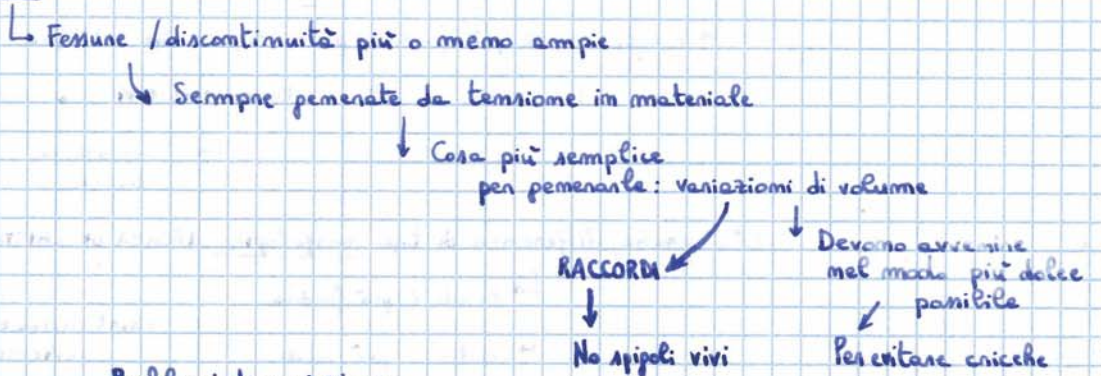 Fessure / discontinuità più o meno ampie
Sempre generate da tensione in materiale
Cosa più semplice
per generarle: variazioni di volume
Devono avvenire
RACCORDI
nel modo più dolce
possibile
No spigoli vivi
Per evitare cricche